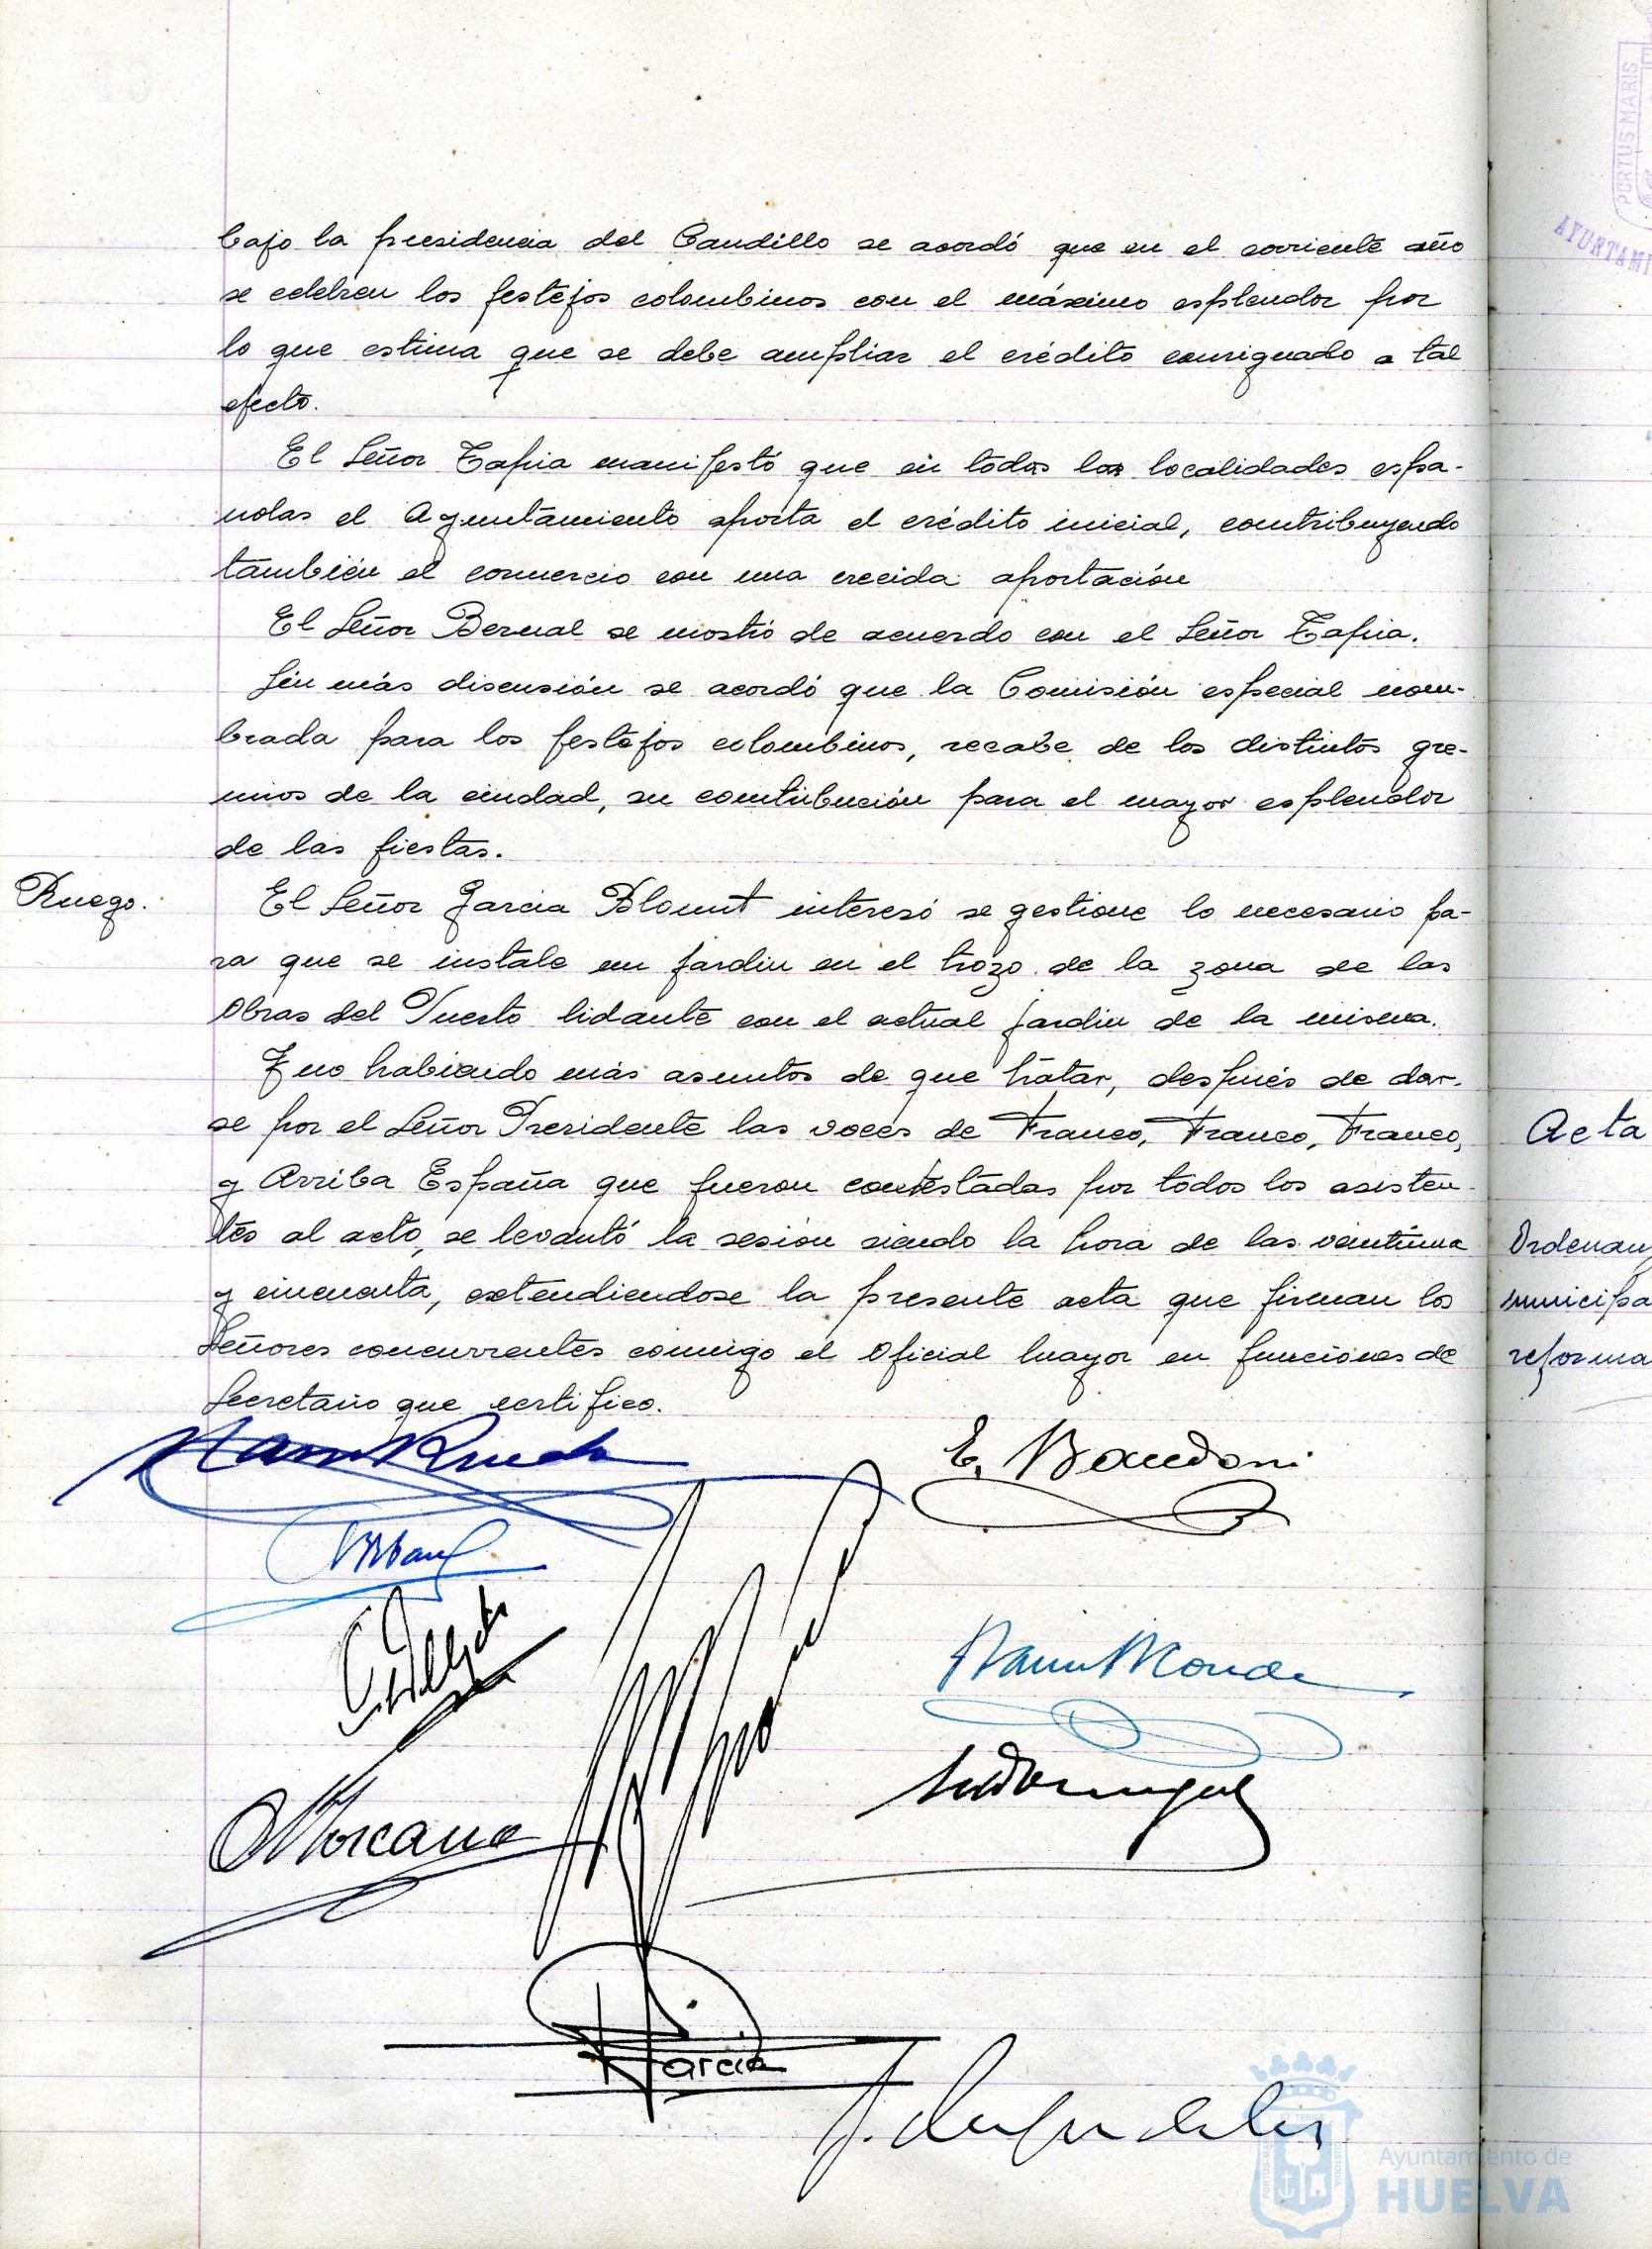 bajo la presidencia del Caudillo se acordó que en el corriente año
se celebren los festejos colombinos con el máximo esplendor por
lo que estima que se debe ampliar el crédito consignado a tal
efecto.
El Señor Tapia manifestó que en todas las localidades espa-
nolas el Ayuntamiento aporta el crédito inicial, contribuyendo
también el comercio con una crecida aportación
El Señor Bernal se mostró de acuerdo con el Señor Tapia.
Sin más discusión se acordó que la Comisión especial nom-
brada para los festejos colombinos, recabe de los distintos gre-
mios de la ciudad, su contribución para el mayor esplendor
de las fiestas.
Ruego.
El Señor Garcia Blount interesó se gestione lo necesario pa-
ra que se instale un jardin en el trozo de la zona de las
Obras del Puerto lidante con el actual jardin de la misma.
Y no habiendo más asuntos de que tratar, después de dar-
se por el Señor Presidente las voces de Franco, Franco, Franco,
y Arriba España que fueron contestadas por todos los asisten-
tes al acto, se levantó la sesión siendo la hora de las veintiuna
y cincuenta, extendiendose la presente acta que firman los
Señores concurrentes conmigo el Oficial mayor en funciones de
Secretario que certifico.
E. Baudoni
Morcano
Garcia
PORTUS MARIS
AYUNTAMI
Acta
Ordenanz
municipa
reforma
Ayuntamiento de
HUELVA